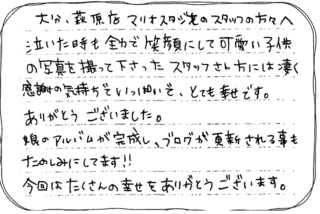 大分、萩原店 マリナスタジオのスタッフの方々へ
泣いた時も全力で笑顔にして可愛い子供
の写真を撮って下さったスタッフさん方には凄く
感謝の気持ちでいっぱいで、とても幸せです。
ありがとうございました。
娘のアルバムが完成し、ブログが更新される事も
たのしみにしてます!!
今回はたくさんの幸せをありがとうございます。